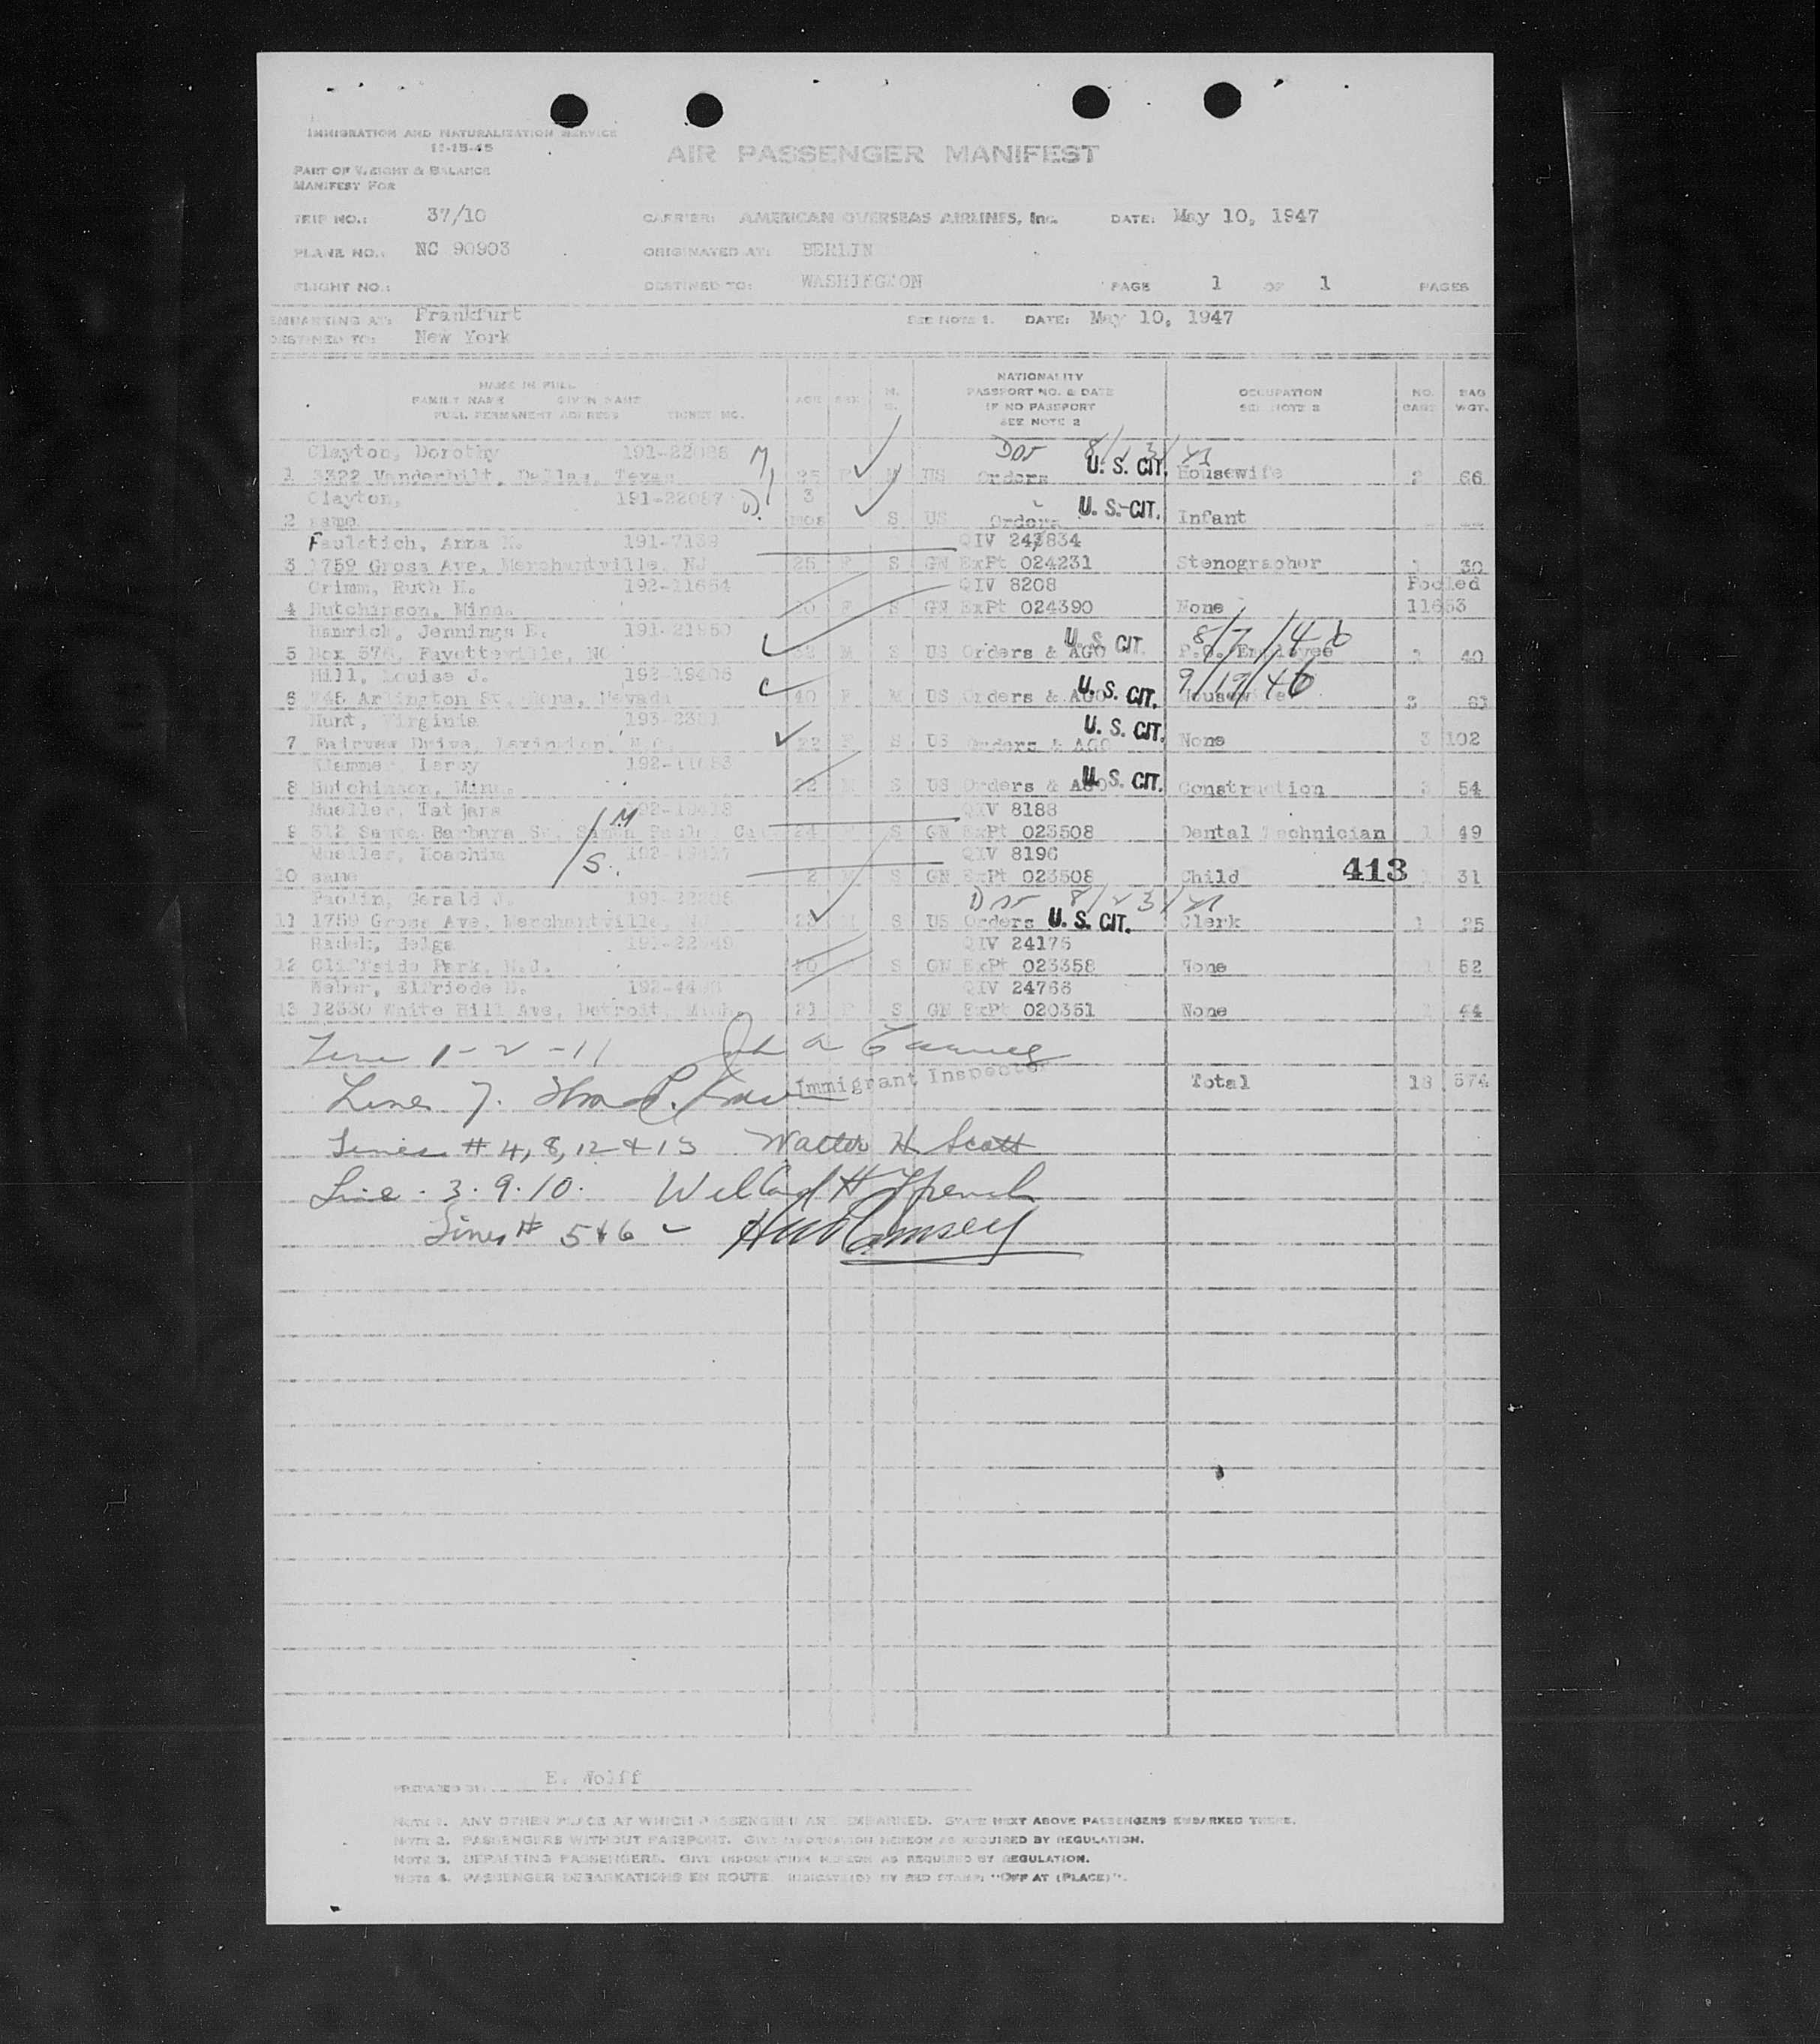 IMMIGRATION AND NATURALIZATION SERVICE
11-15-45
AIR PASSENGER MANIFEST
PART OF WEIGHT & BALANCE
MANIFEST FOR
TRIP NO.: 37/10 CARRIER: AMERICAN OVERSEAS AIRLINES, Inc. DATE: May 10, 1947
PLANE NO.: NC 90903 ORIGINATED AT: BERLIN
FLIGHT NO.: DESTINED TO: WASHINGTON PAGE 1 OF 1 PAGES
EMBARKING AT: Frankfurt SEE NOTE 1. DATE: May 10, 1947
DESTINED TO: New York
NAME IN FULL
FAMILY NAME GIVEN NAME
FULL PERMANENT ADDRESS TICKET NO.
AGE SEX M. S.
NATIONALITY
PASSPORT NO. & DATE
IF NO PASSPORT
SEE NOTE 2
OCCUPATION
SEE NOTE 3
NO. BAGS
BAG WGT.
Clayton, Dorothy 191-22086 M
1 3322 Vanderbilt, Dallas, Texas 25 F M US Orders U. S. CIT. Housewife 2 66
Clayton, 191-22087 D. 3
2 same mos S US Orders U. S. CIT. Infant
Faulstich, Anna 191-7139 QIV
3 1759 Gross Ave, Merchantville, NJ 25 F S GN ExPt 024231 Stenographer 1 30
Grimm, Ruth H. 192-11654 QIV 8208 Pooled
4 Hutchinson, Minn. 20 F S GN ExPt 024390 None 11653
Jennings 191-21950 8/7/46
5 Box Fayetteville, NC M S US Orders & AGO U. S. CIT. P.O. Employee 1 40
Hill, Louise J. 192-19406 9/19/46
6 Arlington St, Nevada 40 F M US Orders & AGO U. S. CIT. Housewife 3
Hunt, Virginia
7 Lexington, N.C. 22 F S US Orders & AGO U. S. CIT. None 3 102
Leroy 192-11653
8 Hutchinson, Minn. 22 M S US Orders & AGO U. S. CIT. Construction 3 54
Mueller, Tatjana M QIV 8188
9 512 Santa Barbara St, Santa Paula, Cal 24 F S GN ExPt 023508 Dental Technician 1 49
Mueller, S. QIV 8196
10 same 2 M S GN ExPt 023508 Child 413 1 31
Gerald J.
11 1759 Gross Ave, Merchantville, 23 M S US Orders U. S. CIT. Clerk 1 25
Radek, Helga QIV 24175
12 Cliffside Park, N.J. 20 S GN ExPt 023358 None 1 52
Weber, Elfriede QIV 24766
13 12330 White Hill Ave, Detroit, Mich. 21 F S GN ExPt 020351 None 44
Line 1-2-11 John A
Immigrant Inspector Total 18 674
Line 7.
Lines # 4, 8, 12 & 13 Walter H. Scott
Line . 3. 9. 10. Willard H. French
Lines # 5 & 6 - Ramsey
PREPARED BY: E. Wolff
NOTE 1. ANY OTHER PLACE AT WHICH PASSENGERS ARE EMBARKED. STATE NEXT ABOVE PASSENGERS EMBARKED THERE.
NOTE 2. PASSENGERS WITHOUT PASSPORT. GIVE INFORMATION HEREON AS REQUIRED BY REGULATION.
NOTE 3. DEPARTING PASSENGERS. GIVE INFORMATION HEREON AS REQUIRED BY REGULATION.
NOTE 4. PASSENGER DEBARKATIONS EN ROUTE. INDICATE(D) BY RED STAMP: "OFF AT (PLACE)".